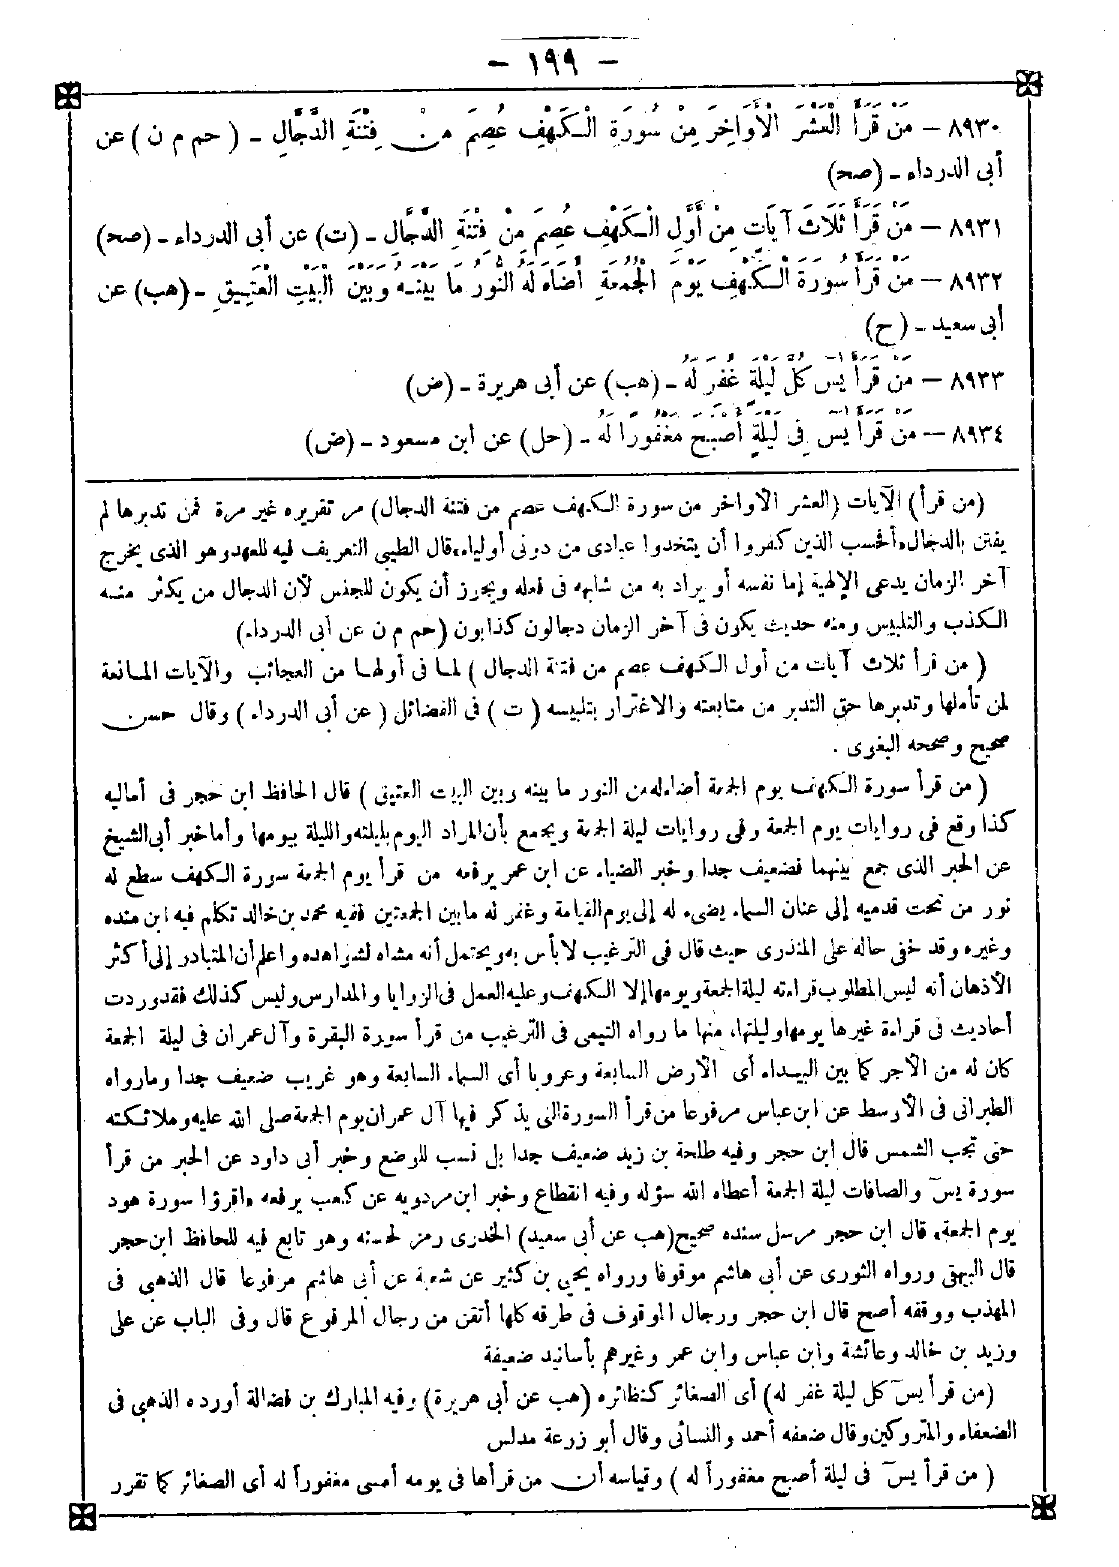 - ١٩٩ -
٨٩٣٠ - مَنْ قَرَأَ الْعَشْرَ الْأَوَاخِرَ مِنْ سُورَةِ الْكَهْفِ عُصِمَ مِنْ فِتْنَةِ الدَّجَّالِ - ( حم م ن ) عن
أبى الدرداء - (صح)
٨٩٣١ - مَنْ قَرَأَ ثَلَاثَ آيَاتٍ مِنْ أَوَّلِ الْكَهْفِ عُصِمَ مِنْ فِتْنَةِ الدَّجَّالِ - (ت) عن أبى الدرداء - (صح)
٨٩٣٢ - مَنْ قَرَأَ سُورَةَ الْكَهْفِ يَوْمَ الْجُمُعَةِ أَضَاءَ لَهُ النُّورُ مَا بَيْنَهُ وَبَيْنَ الْبَيْتِ الْعَتِيقِ - (هب) عن
أبى سعيد - (ح)
٨٩٣٣ - مَنْ قَرَأَ يٰسٓ كُلَّ لَيْلَةٍ غُفِرَ لَهُ - (هب) عن أبى هريرة - (ض)
٨٩٣٤ - مَنْ قَرَأَ يٰسٓ فِى لَيْلَةٍ أَصْبَحَ مَغْفُورًا لَهُ - (حل) عن ابن مسعود - (ض)
(من قرأ) الآيات (العشر الأواخر من سورة الكهف عصم من فتنة الدجال) مر تقريره غير مرة فمن تدبرها لم
يفتتن بالدجال «أفحسب الذين كفروا أن يتخذوا عبادى من دونى أولياء» قال الطيبي التعريف فيه للعهد وهو الذى يخرج
آخر الزمان يدعى الإلهية إما نفسه أو يراد به من شابهه فى فعله ويجوز أن يكون للجنس لأن الدجال من يكثر منه
الكذب والتلبيس ومنه حديث يكون فى آخر الزمان دجالون كذابون (حم م ن عن أبى الدرداء)
( من قرأ ثلاث آيات من أول الكهف عصم من فتنة الدجال ) لما فى أولها من العجائب والآيات المانعة
لمن تأملها وتدبرها حق التدبر من متابعته والاغترار بتلبيسه ( ت ) فى الفضائل ( عن أبى الدرداء ) وقال حسن
صحيح وصححه البغوى .
( من قرأ سورة الكهف يوم الجمعة أضاء له من النور ما بينه وبين البيت العتيق ) قال الحافظ ابن حجر فى أماليه
كذا وقع فى روايات يوم الجمعة وفى روايات ليلة الجمعة ويجمع بأن المراد اليوم بليلته والليلة بيومها وأما خبر أبى الشيخ
عن الحبر الذى جمع بينهما فضعيف جدا وخبر الضياء عن ابن عمر يرفعه من قرأ يوم الجمعة سورة الكهف سطع له
نور من تحت قدميه إلى عنان السماء يضىء له إلى يوم القيامة وغفر له ما بين الجمعتين ففيه محمد بن خالد تكلم فيه ابن منده
وغيره وقد خفى حاله على المنذرى حيث قال فى الترغيب لا بأس به ويحتمل أنه مشاه لشواهده واعلم أن المتبادر إلى أكثر
الأذهان أنه ليس المطلوب قراءته ليلة الجمعة ويومها إلا الكهف وعليه العمل فى الزوايا والمدارس وليس كذلك فقد وردت
أحاديث فى قراءة غيرها يومها وليلتها، منها ما رواه التيمى فى الترغيب من قرأ سورة البقرة وآل عمران فى ليلة الجمعة
كان له من الأجر كما بين البيداء أى الأرض السابعة وعروبا أى السماء السابعة وهو غريب ضعيف جدا وما رواه
الطبرانى فى الأوسط عن ابن عباس مرفوعا من قرأ السورة التى يذكر فيها آل عمران يوم الجمعة صلى الله عليه وملائكته
حتى تجب الشمس قال ابن حجر وفيه طلحة بن زيد ضعيف جدا بل نسب للوضع وخبر أبى داود عن الحبر من قرأ
سورة يسٓ والصافات ليلة الجمعة أعطاه الله سؤله وفيه انقطاع وخبر ابن مردويه عن كعب يرفعه «اقرؤا سورة هود
يوم الجمعة» قال ابن حجر مرسل سنده صحيح (هب عن أبى سعيد) الخدرى رمز لحسنه وهو تابع فيه للحافظ ابن حجر
قال البيهقى ورواه الثورى عن أبى هاشم موقوفا ورواه يحيى بن كثير عن شعبة عن أبى هاشم مرفوعا قال الذهبى فى
المهذب ووقفه أصح قال ابن حجر ورجال الموقوف فى طرقه كلها أتقن من رجال المرفوع قال وفى الباب عن على
وزيد بن خالد وعائشة وابن عباس وابن عمر وغيرهم بأسانيد ضعيفة
(من قرأ يسٓ كل ليلة غفر له) أى الصغائر كنظائره (هب عن أبى هريرة) وفيه المبارك بن فضالة أورده الذهبى فى
الضعفاء والمتروكين وقال ضعفه أحمد والنسائى وقال أبو زرعة مدلس
( من قرأ يسٓ فى ليلة أصبح مغفوراً له ) وقياسه أن من قرأها فى يومه أمسى مغفوراً له أى الصغائر كما تقرر